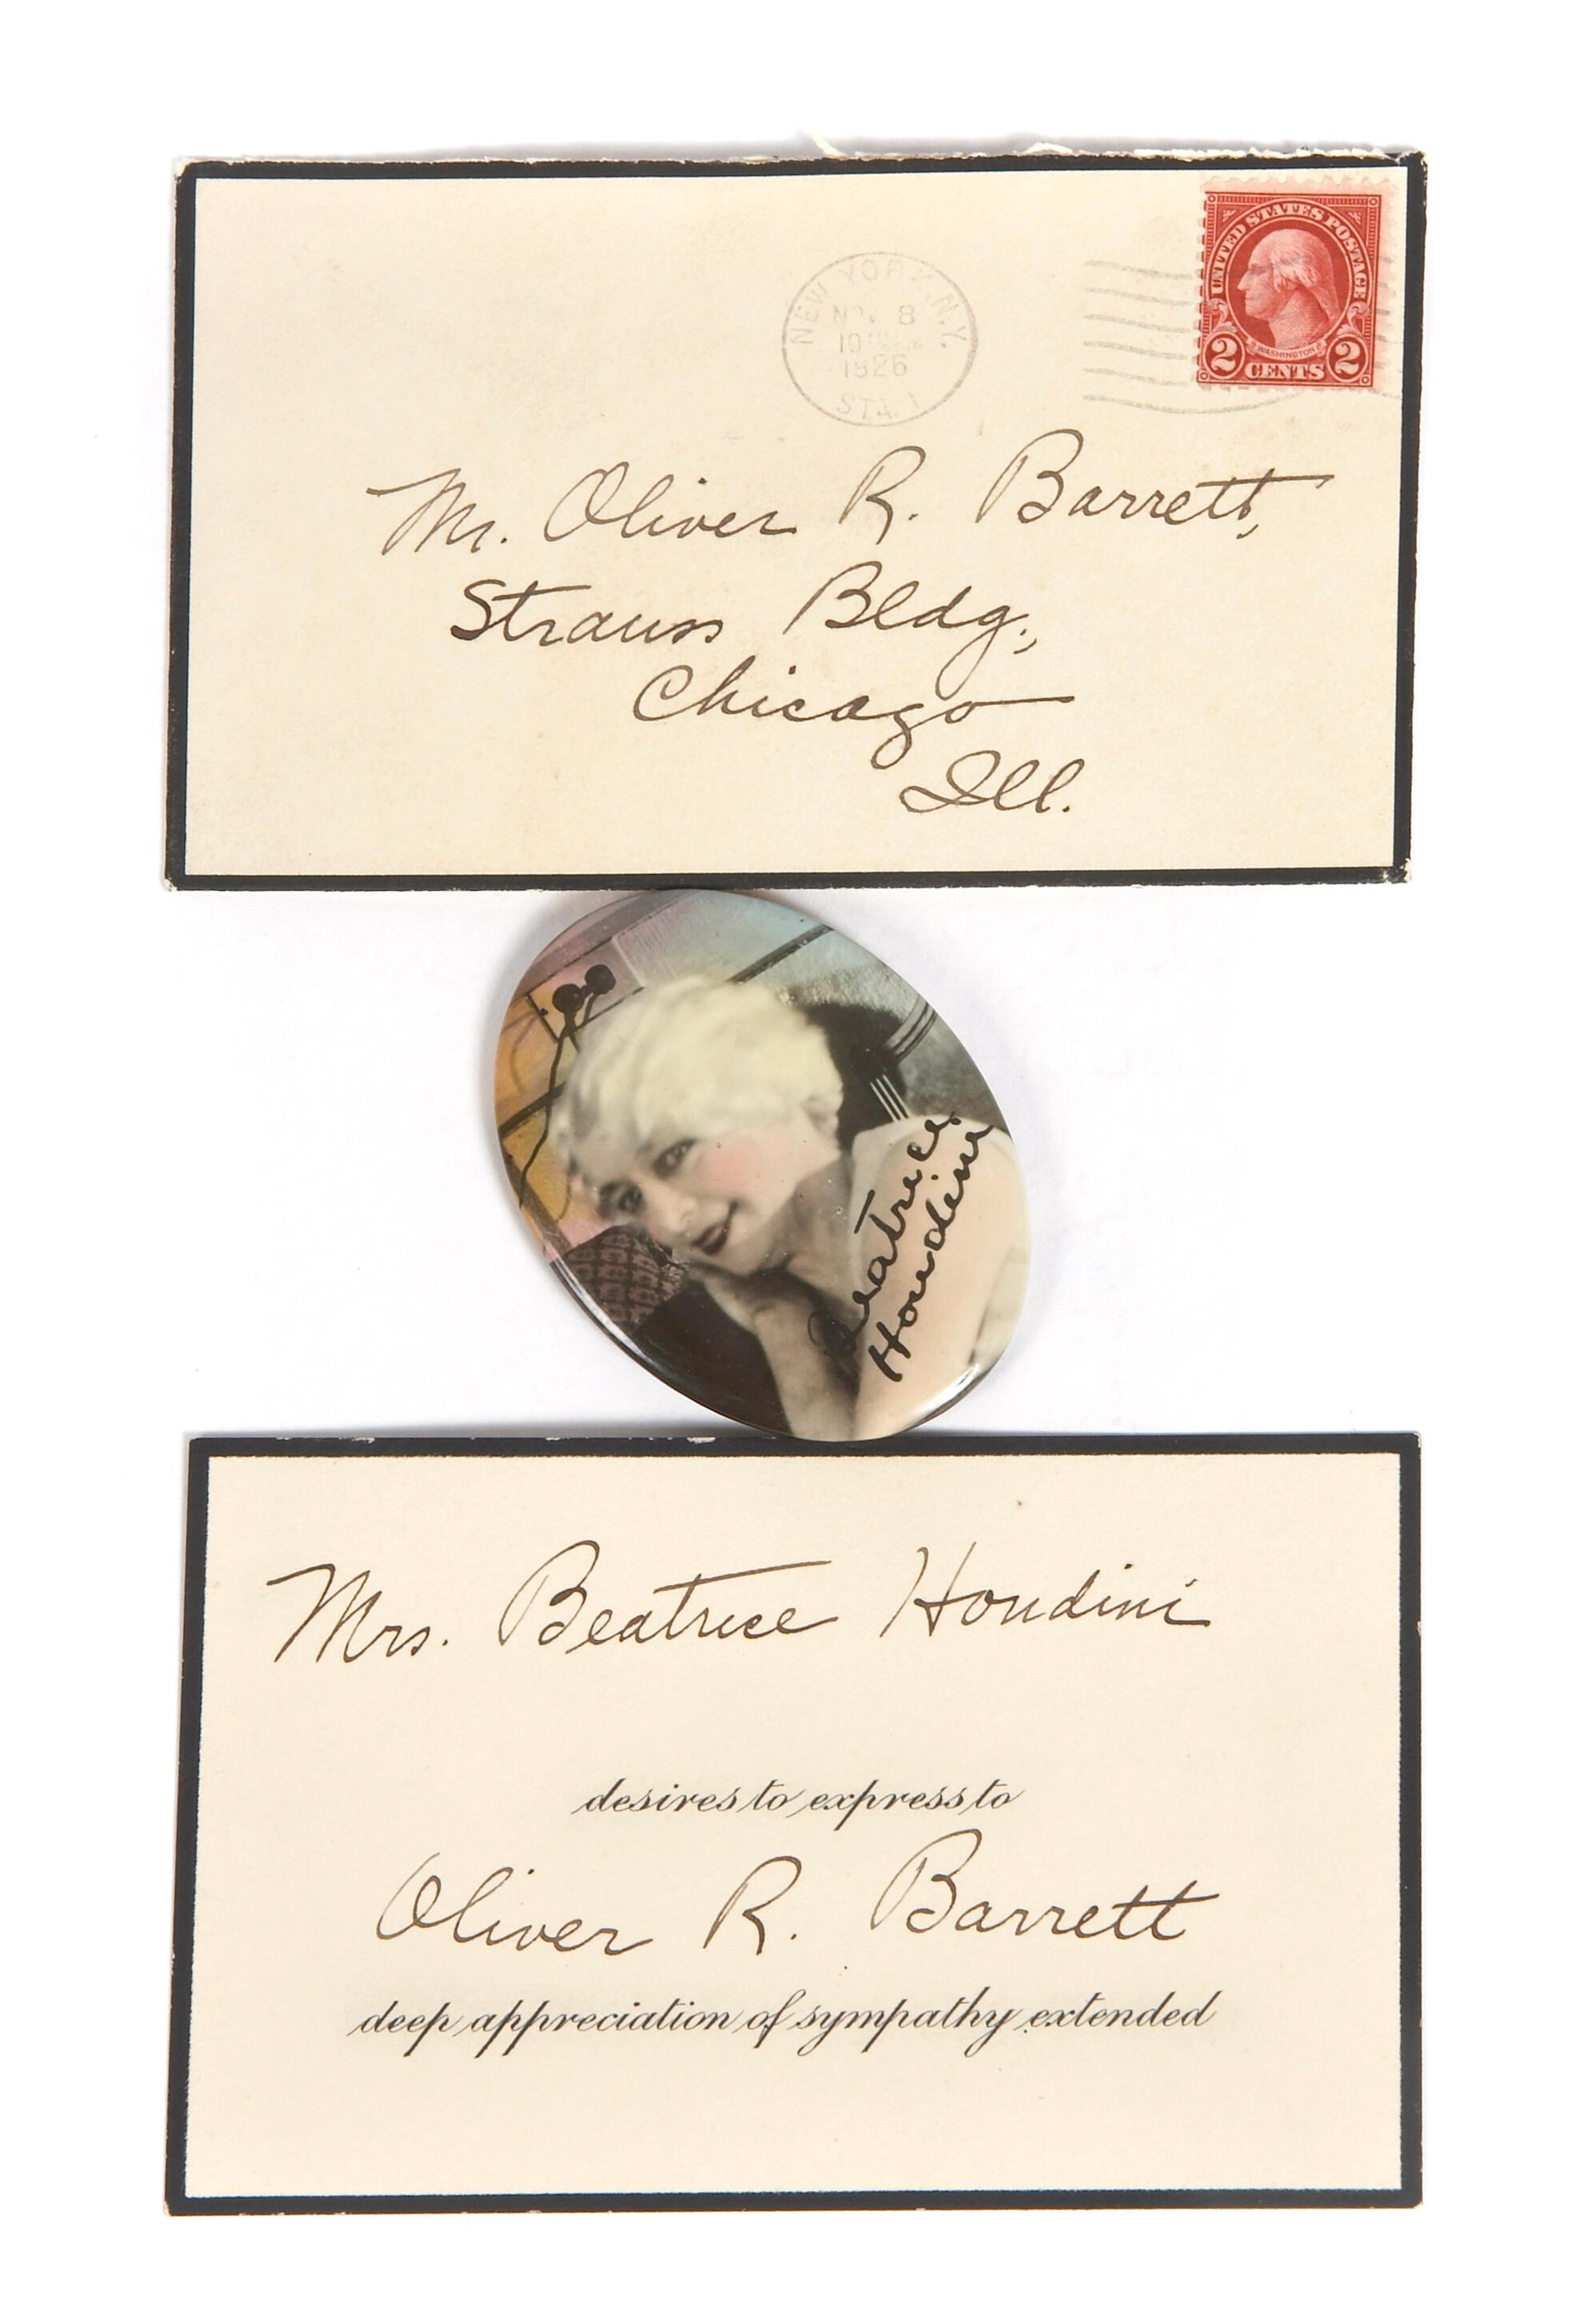 UNITED STATES POSTAGE
WASHINGTON
2 CENTS 2
NEW YORK, N.Y.
NOV 8
1926
STA. 1
Mr. Oliver R. Barrett,
Strauss Bldg.,
Chicago
Ill.
Beatrice
Houdini
Mrs. Beatrice Houdini
desires to express to
Oliver R. Barrett
deep appreciation of sympathy extended